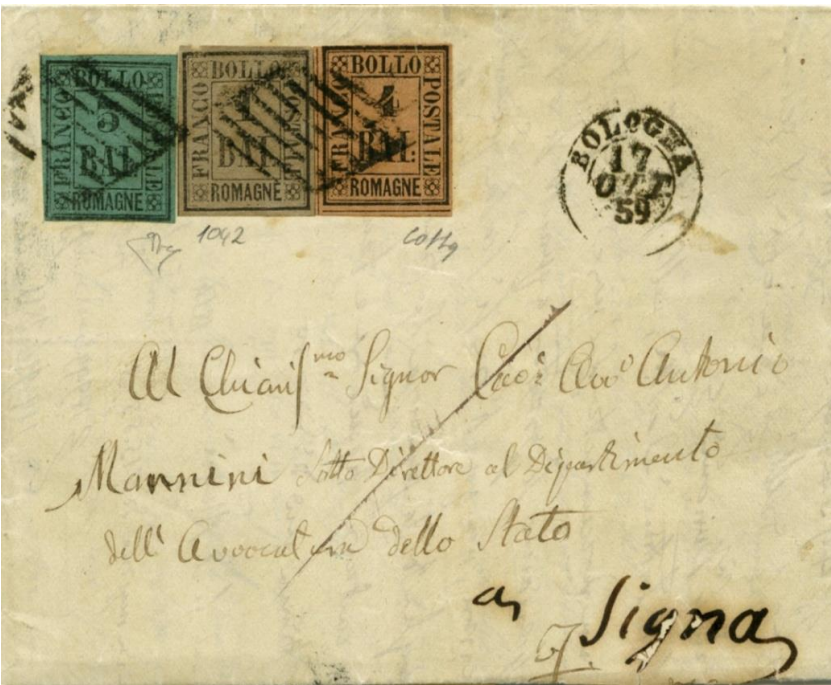 BOLLO
FRANCO
POSTALE
3
BAI.
ROMAGNE
BOLLO
FRANCO
POSTALE
1
BAI.
ROMAGNE
BOLLO
FRANCO
POSTALE
4
BAI:
ROMAGNE
BOLOGNA
17
OTT
59
1042
Al Chiariſ.mo Signor Avvo Antonio
Mannini Sotto Direttore al Dipartimento
dell' Avvocatura dello Stato
a Signa